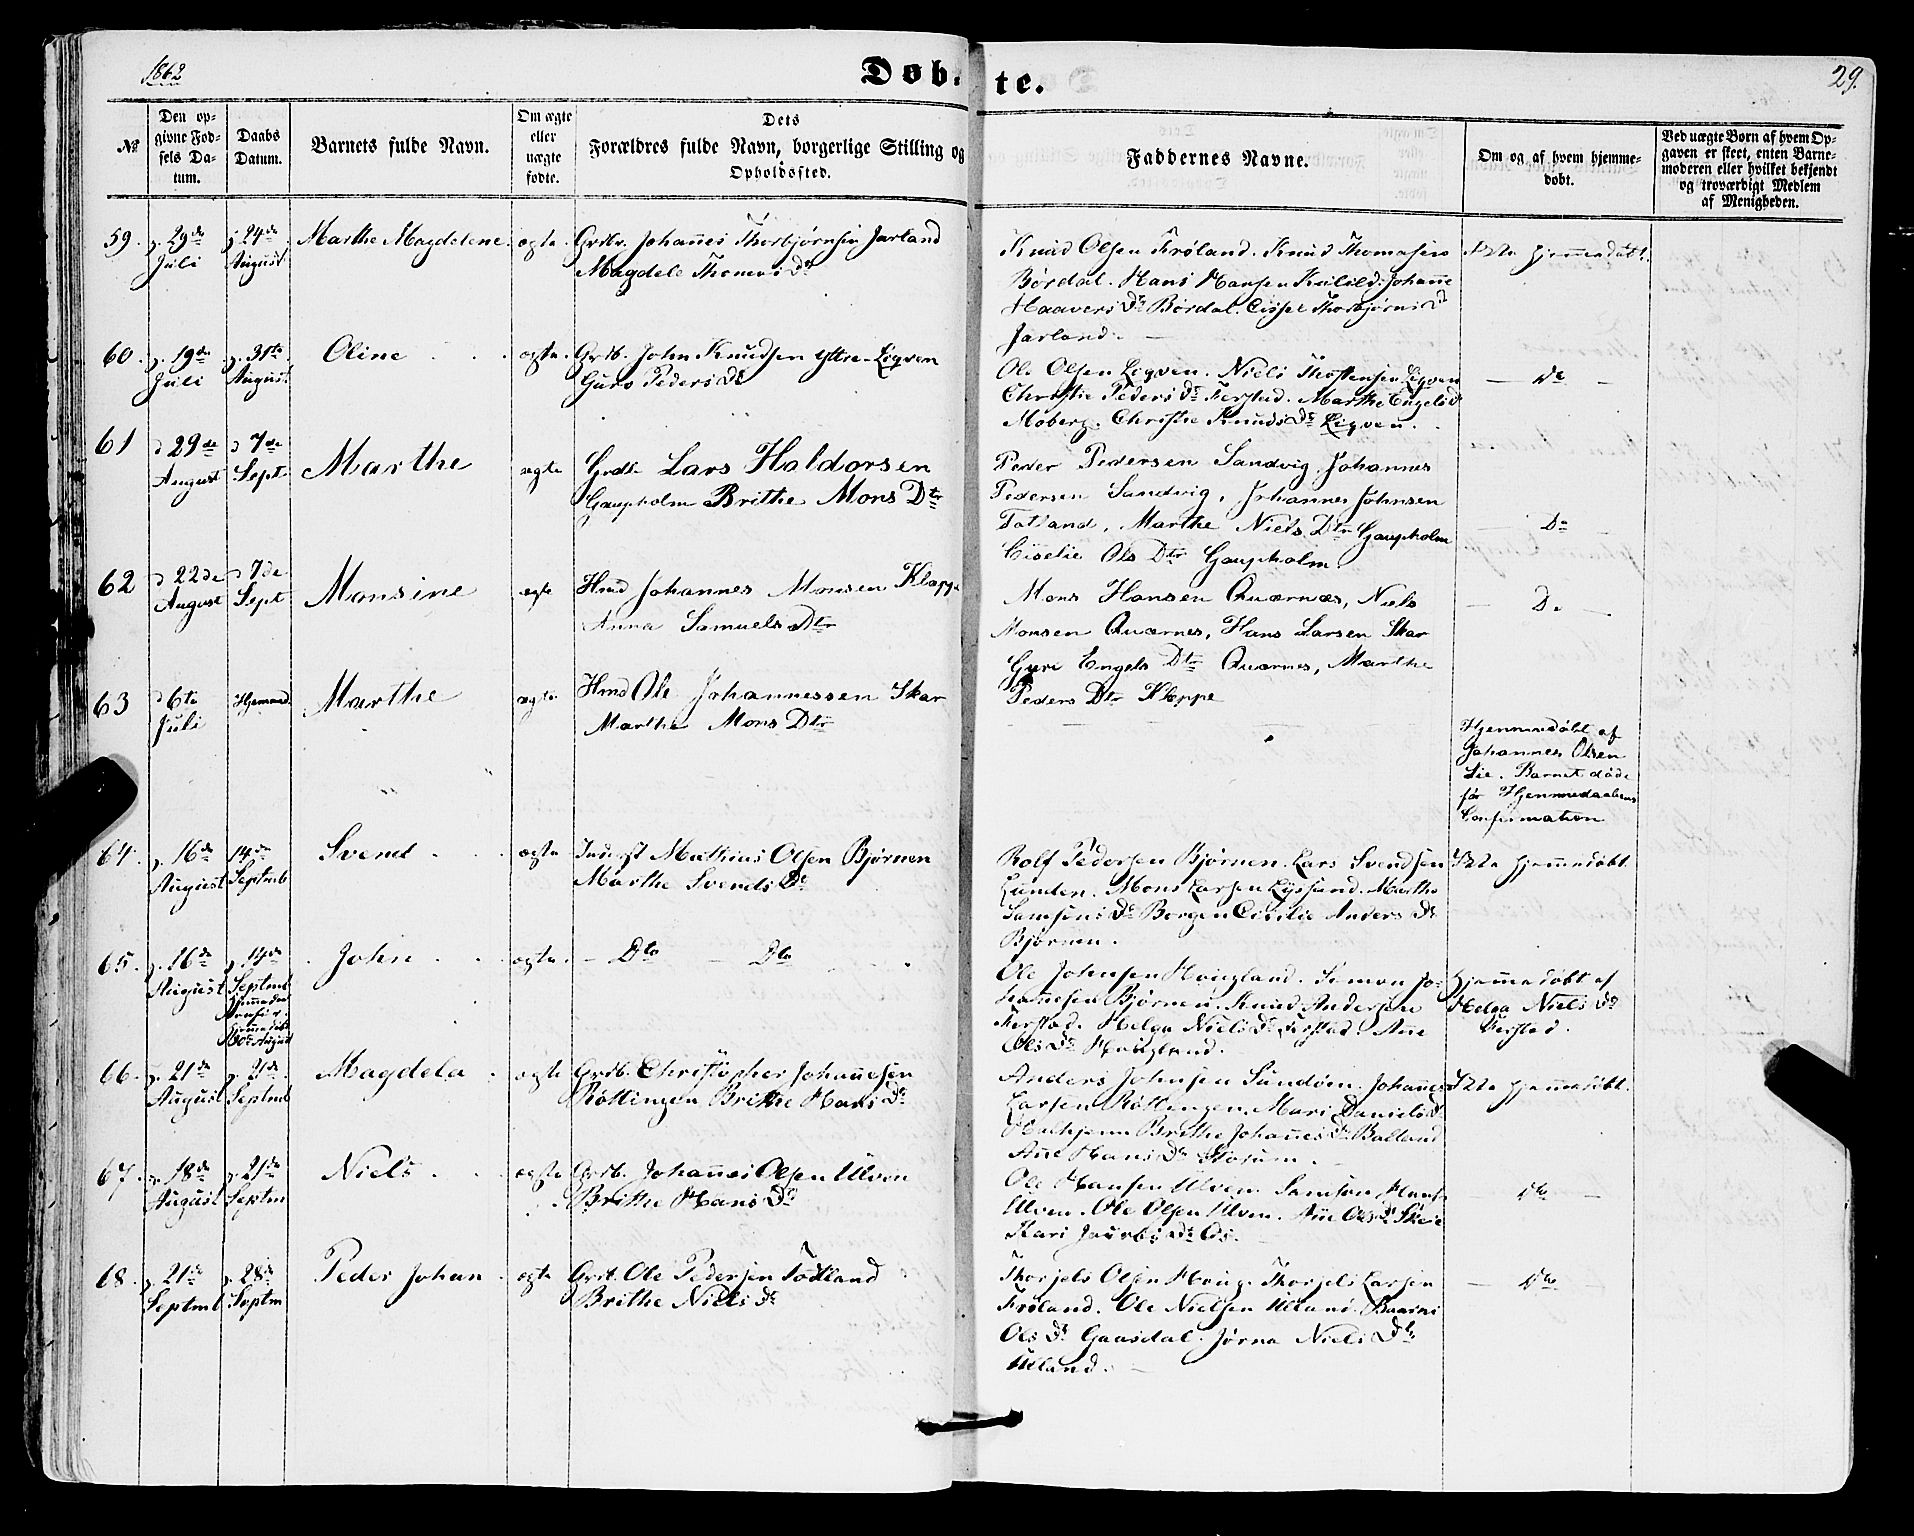 1862
Døbte.
29.
No
Den opgivne Fødsels Datum.
Daabs Datum.
Barnets fulde Navn.
Om ægte eller uægte fødte.
Dets Forældres fulde Navn, borgerlige Stilling og Opholdssted.
Faddernes Navne.
Om og af hvem hjemmedøbt.
Ved uægte Børn af hvem Opgaven er skeet, enten Barnemoderen eller hvilket bekjendt og troværdigt Medlem af Menigheden.
59. d. 29de Juli
d. 24de August
Marthe Magdelene
ægte
Grdbr. Johannes Thorbjørnsen Jarland
Magdele Thomasdr
Knud Olsen Frøland. Knud Thomasen
Børdal. Hans Hansen Johanne
Haaversdr Børdal. Thorbjørnsdr
Jarland.
Ikke hjemmedøbt.
60. d. 19de Juli
d. 31te August
Oline
ægte.
Grdb. John Knudsen Yttre-Ligven
Guro Pedersdr
Ole Olsen Ligven. Niels Thostensen Ligven
Christie Pedersdr Ferstad. Marthe Engelsdr
Moberg. Christie Knudsdr Ligven.
Do
61 d 29de August
d 7de Sept
Marthe
ægte
Grdb Lars Haldorsen
Gaupholm Brithe Mons Dtr
Peder Pedersen Sandvig, Johannes
Pedersen Sandvig, Johannes Johnsen
Tøtland, Marthe Niels Dtr Gaupholm
Ciselie Ols Dtr Gaupholm.
Do
62 d 22de August
d 7de Sept
Monsine
ægte
Hmd Johannes Monsen Klæppe
Anna Samuels Dtr
Mons Hansen Quærnæs, Niels
Monsen Quærnes, Hans Larsen Skar
Guri Engels Dtr Quærnes, Marthe
Peders Dtr Klæppe
Do
63 d 6te Juli
Hjemmed.
Marthe
ægte
Hmd Ole Johannessen Skar
Marthe Mons Dtr
Hjemmedøbt af
Johannes Olsen
Lie. Barnet døde
før Hjemmedaabens
Confirmation
64. d. 16de August
14de Septmb
Svend
ægte
Inderst Mathias Olsen Bjørnen
Marthe Svendsdr
Rolf Pedersen Bjørnen. Lars Svendsen
Lunden. Mons Larsen Lysund. Marthe
Samsonsdr Borgen Cicilie Andersdr
Bjørnen.
Ikke hjemmedøbt.
65. d. 16de August
d. 14de Septmb
August
John
ægte.
Dto Dto
Ole Johnsen Haugland. Simon Johannesen
Bjørnen. Knud Andersen
Ferstad. Helga Nielsdr Ferstad. Ane
Olsdr Haugland.
Hjemmedøbt af
Helga Nielsdr
Ferstad.
66. d. 21de August
d. 21de Septmb
Magdela
ægte
Grdb. Christopher Johannesen
Røttingen Brithe Hansdr
Anders Johnsen Sundøen. Johannes
Larsen Røttingen. Mari Danielsdr
Halhjem Brithe Johannesdr Balland
Ane Hansdr
Ikke hjemmedøbt.
67. d. 18de August
d. 21de Septm
Niels
ægte
Grdb. Johannes Olsen Ulven
Brithe Hansdr
Ole Hansen Ulven. Samson Hans.
Ulven. Ole Olsen Ulven. Ane Olsdr Skeie
Kari Os.
Do
68. d. 21de Septmb
d. 28de Septm
Peder Johan
ægte
Grdb. Ole Pedersen Tødland
Brithe Nielsdr
Thorjels Olsen Haug. Thorjels Larsen
Frøland. Ole Nielsen Ulland.
Olsdr Gaasdal. Jørna Nielsdr
Ulland.
Do